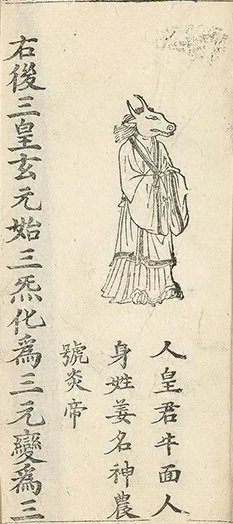 人皇君牛面人
身姓姜名神農
號炎帝
右後三皇玄元始三炁化為三元變為三